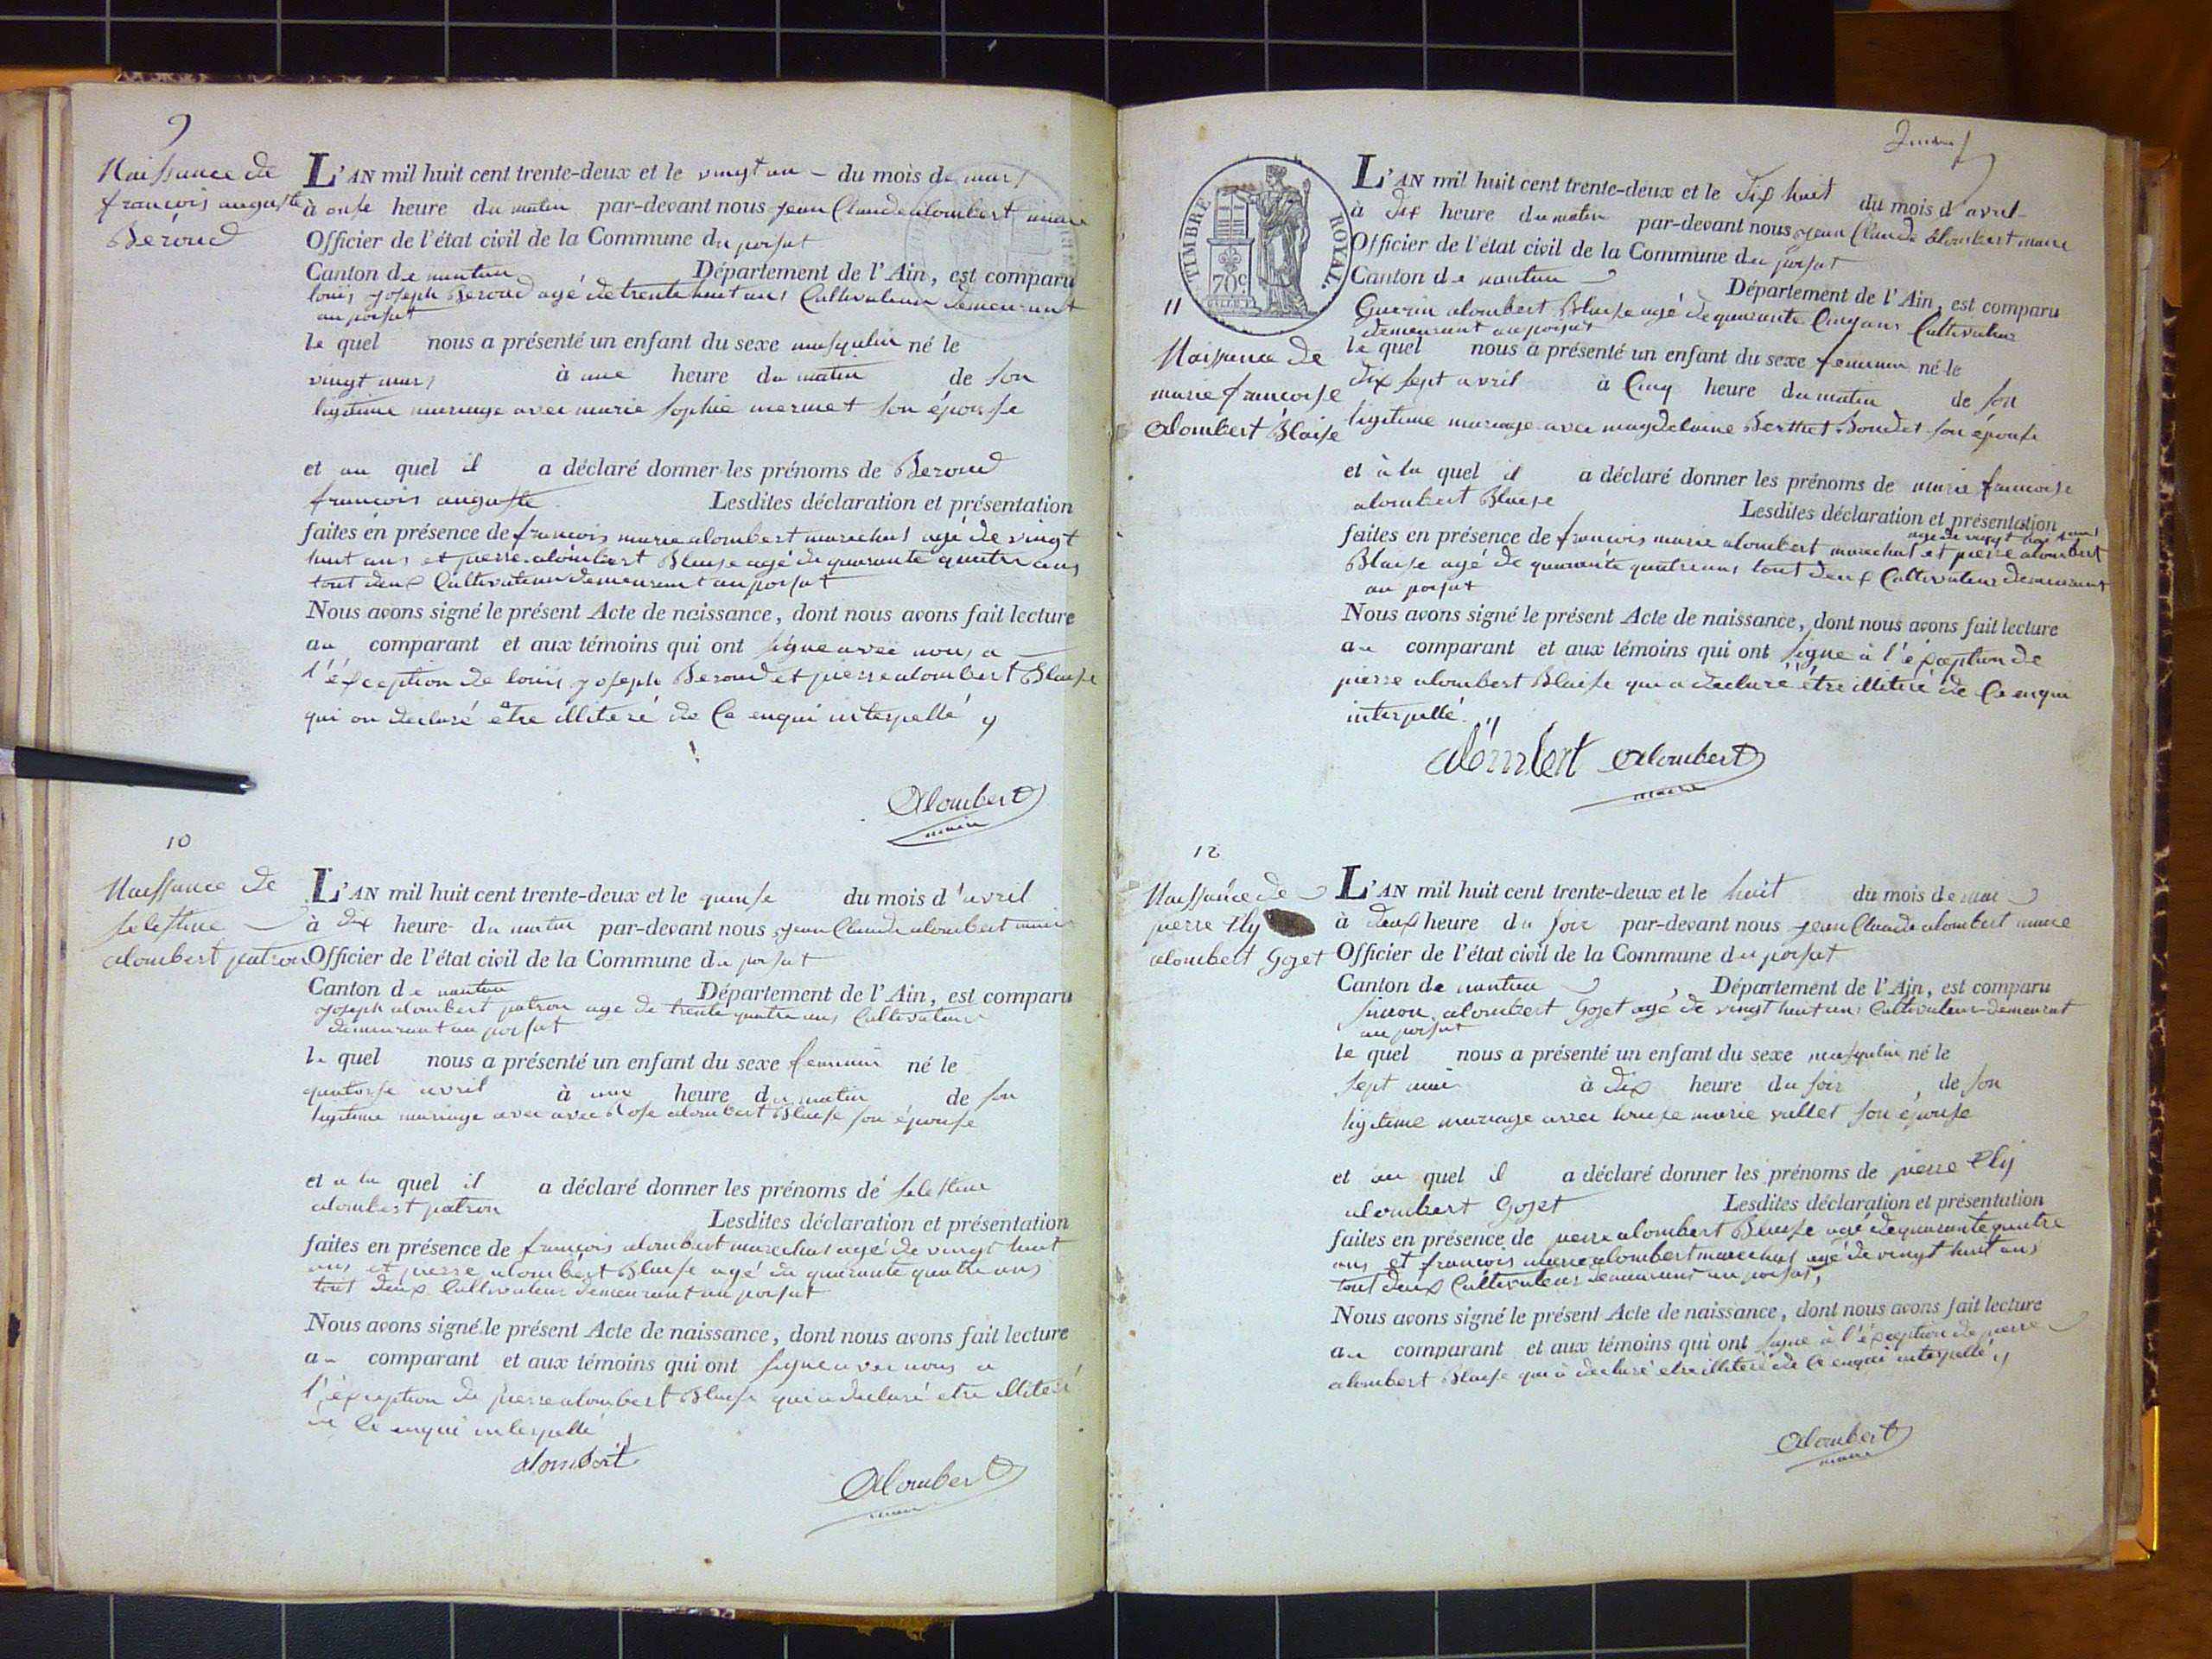 9
Naissance de
françois auguste
Beroud
L'AN mil huit cent trente-deux et le vingt un du mois de mars
à onse heure du matin par-devant nous jean Claude alombert maire
Officier de l'état civil de la Commune du poisat
Canton de nantua Département de l'Ain, est comparu
louis joseph Beroud agé de trente huit ans Cultivateur demeurant
au poisat
le quel nous a présenté un enfant du sexe masqulin né le
vingt mars à une heure du matin de son
ligitime mariage avec marie sophie mermet son épouse
et au quel il a déclaré donner les prénoms de Beroud
françois auguste Lesdites déclaration et présentation
faites en présence de françois marie alombert marechal agé de vingt
huit ans et pierre alombert Blaise agé de quarante quatre ans
tout deux Cultivateur demeurant au poisat
Nous avons signé le présent Acte de naissance, dont nous avons fait lecture
au comparant et aux témoins qui ont signe avec nous a
l'éxception de louis joseph Beroud et pierre alombert Blaise
qui on declaré être illiteré de Ce enqui interpellé
Alombert
maire
10
Naissance de
selestine
alombert patron
L'AN mil huit cent trente-deux et le quinse du mois d'avril
à dix heure du matin par-devant nous jean Claude alombert maire
Officier de l'état civil de la Commune du poisat
Canton de nantua Département de l'Ain, est comparu
joseph alombert patron age de trente quatre ans Cultivateur
demeurant au poisat
le quel nous a présenté un enfant du sexe feminin né le
quatorse avril à une heure du matin de son
ligitime mariage avec avec Rose alombert Blaise son épouse
et a la quel il a déclaré donner les prénoms de selestine
alombert patron Lesdites déclaration et présentation
faites en présence de françois alombert marechal agé de vingt huit
ans et pierre alombert Blaise agé de quarante quatre ans
tout deux Cultivateur demeurant au poisat
Nous avons signé le présent Acte de naissance, dont nous avons fait lecture
au comparant et aux témoins qui ont signe avec nous a
l'éxception de pierre alombert Blaise qui a declaré etre illiteré
de Ce enqui interpellé
alombert
Alombert
maire
TIMBRE ROYAL
70c
11
Naissance de
marie francoise
Alombert Blaise
L'AN mil huit cent trente-deux et le dix huit du mois d avril
à dix heure du matin par-devant nous jean Claude Alombert maire
Officier de l'état civil de la Commune du poisat
Canton de nantua Département de l'Ain, est comparu
alombert Blaise agé de quarante Cinq ans Cultivateur
demeurant au poisat
le quel nous a présenté un enfant du sexe feminin né le
dix sept avril à Cinq heure du matin de son
ligitime mariage avec magdelaine Berthet Bondet son épouse
et à la quel il a déclaré donner les prénoms de marie francoise
alombert Blaise Lesdites déclaration et présentation
agé de vingt huit ans
faites en présence de francois marie alombert marechal et pierre alombert
Blaise agé de quarante quatre ans tout deux Cultivateur demeurant
au poisat
Nous avons signé le présent Acte de naissance, dont nous avons fait lecture
au comparant et aux témoins qui ont signe à l'éxception de
pierre alombert Blaise qui a declaré être illiteré de Ce enqui
interpellé
alombert Alombert
maire
12
Naissance de
pierre Ely
alombert Gojet
L'AN mil huit cent trente-deux et le huit du mois de mai
à deux heure du soir par-devant nous jean Claude alombert maire
Officier de l'état civil de la Commune du poisat
Canton de nantua Département de l'Ain, est comparu
simon alombert Gojet agé de vingt huit ans Cultivateur demeurant
au poisat
le quel nous a présenté un enfant du sexe masqulin né le
sept mai à dix heure du soir de son
ligitime mariage avec louise marie vallet son épouse
et au quel il a déclaré donner les prénoms de pierre Ely
alombert Gojet Lesdites déclaration et présentation
faites en présence de pierre alombert Blaise agé de quarante quatre
ans et françois marie alombert marechal agé de vingt huit ans
tout deux Cultivateur demeurant au poisat
Nous avons signé le présent Acte de naissance, dont nous avons fait lecture
au comparant et aux témoins qui ont signe à l'éxception de pierre
alombert Blaise qui à declaré etre illiteré de Ce enqui interpellé
Alombert
maire